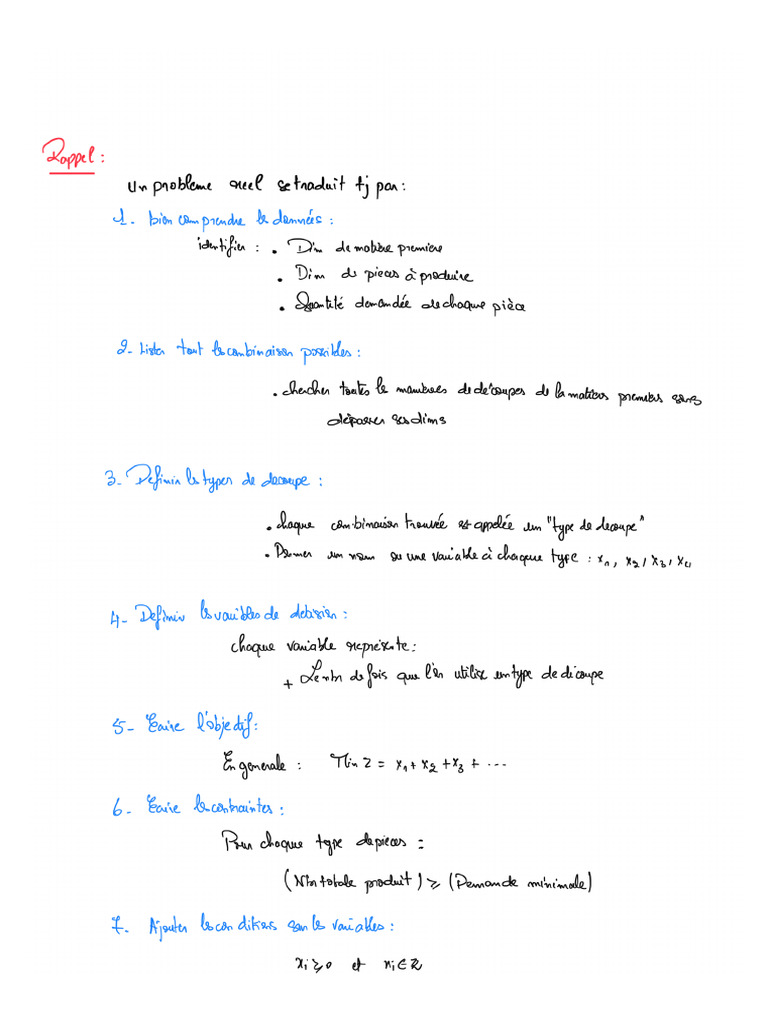 Rappel :
Un probleme reel se traduit tj par :
1. bien comprendre les données :
identifier : • Dim de matière premiere
• Dim de pieces à produire
• Quantité demandée de chaque pièce
2- Lister tout les combinaison possibles :
• chercher toutes les manieres de decoupes de la matières premiers sans
dépasser ses dims
3- Definir les types de decoupe :
• chaque combinaison trouvée est appelée un "type de decoupe"
• Donner un nom ou une variable à chaque type : x₁, x₂, x₃, x₄
4- Definir les variables de decision :
chaque variable représente :
+ Le nbr de fois que l'on utilise un type de découpe
5- Ecrire l'objectif :
En generale : Min Z = x₁ + x₂ + x₃ + ...
6- Ecrire les contraintes :
Pour chaque type de pieces :
(Nbr totale produit) ≥ (Demande minimale)
7. Ajouter les conditions sur les variables :
xᵢ ≥ 0 et xᵢ ∈ ℤ